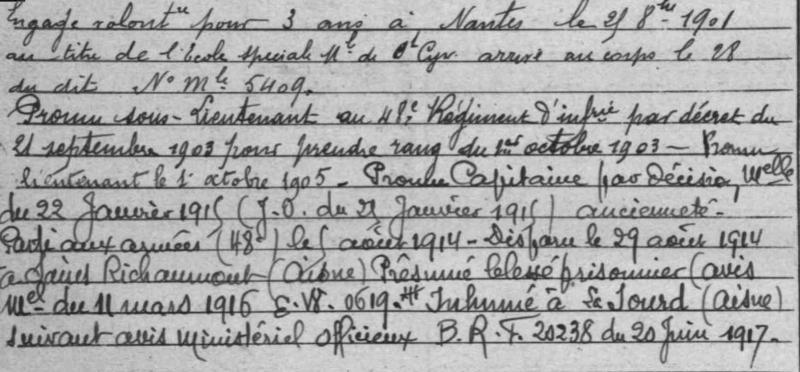 Engagé volont.re pour 3 ans à Nantes le 25 8bre 1901
au titre de l'Ecole spéciale M.re de St Cyr. arrivé au corps le 28
du dit N° Mle 5409.
Promu sous-Lieutenant au 48e Régiment d'infrie par décret du
21 septembre 1903 pour prendre rang du 1er octobre 1903 - Promu
lieutenant le 1er octobre 1905 - Promu Capitaine par Décision Melle
du 22 Janvier 1915 (J.O. du 25 Janvier 1915) ancienneté -
Parti aux armées (48e) le 5 août 1914 - Disparu le 29 août 1914
à Sains Richaumont (Aisne) Présumé blessé prisonnier (avis
Mel du 11 mars 1916 E.VI. 0619. Inhumé à Le Sourd (Aisne)
suivant avis ministériel officieux B.R.F. 20238 du 20 Juin 1917.